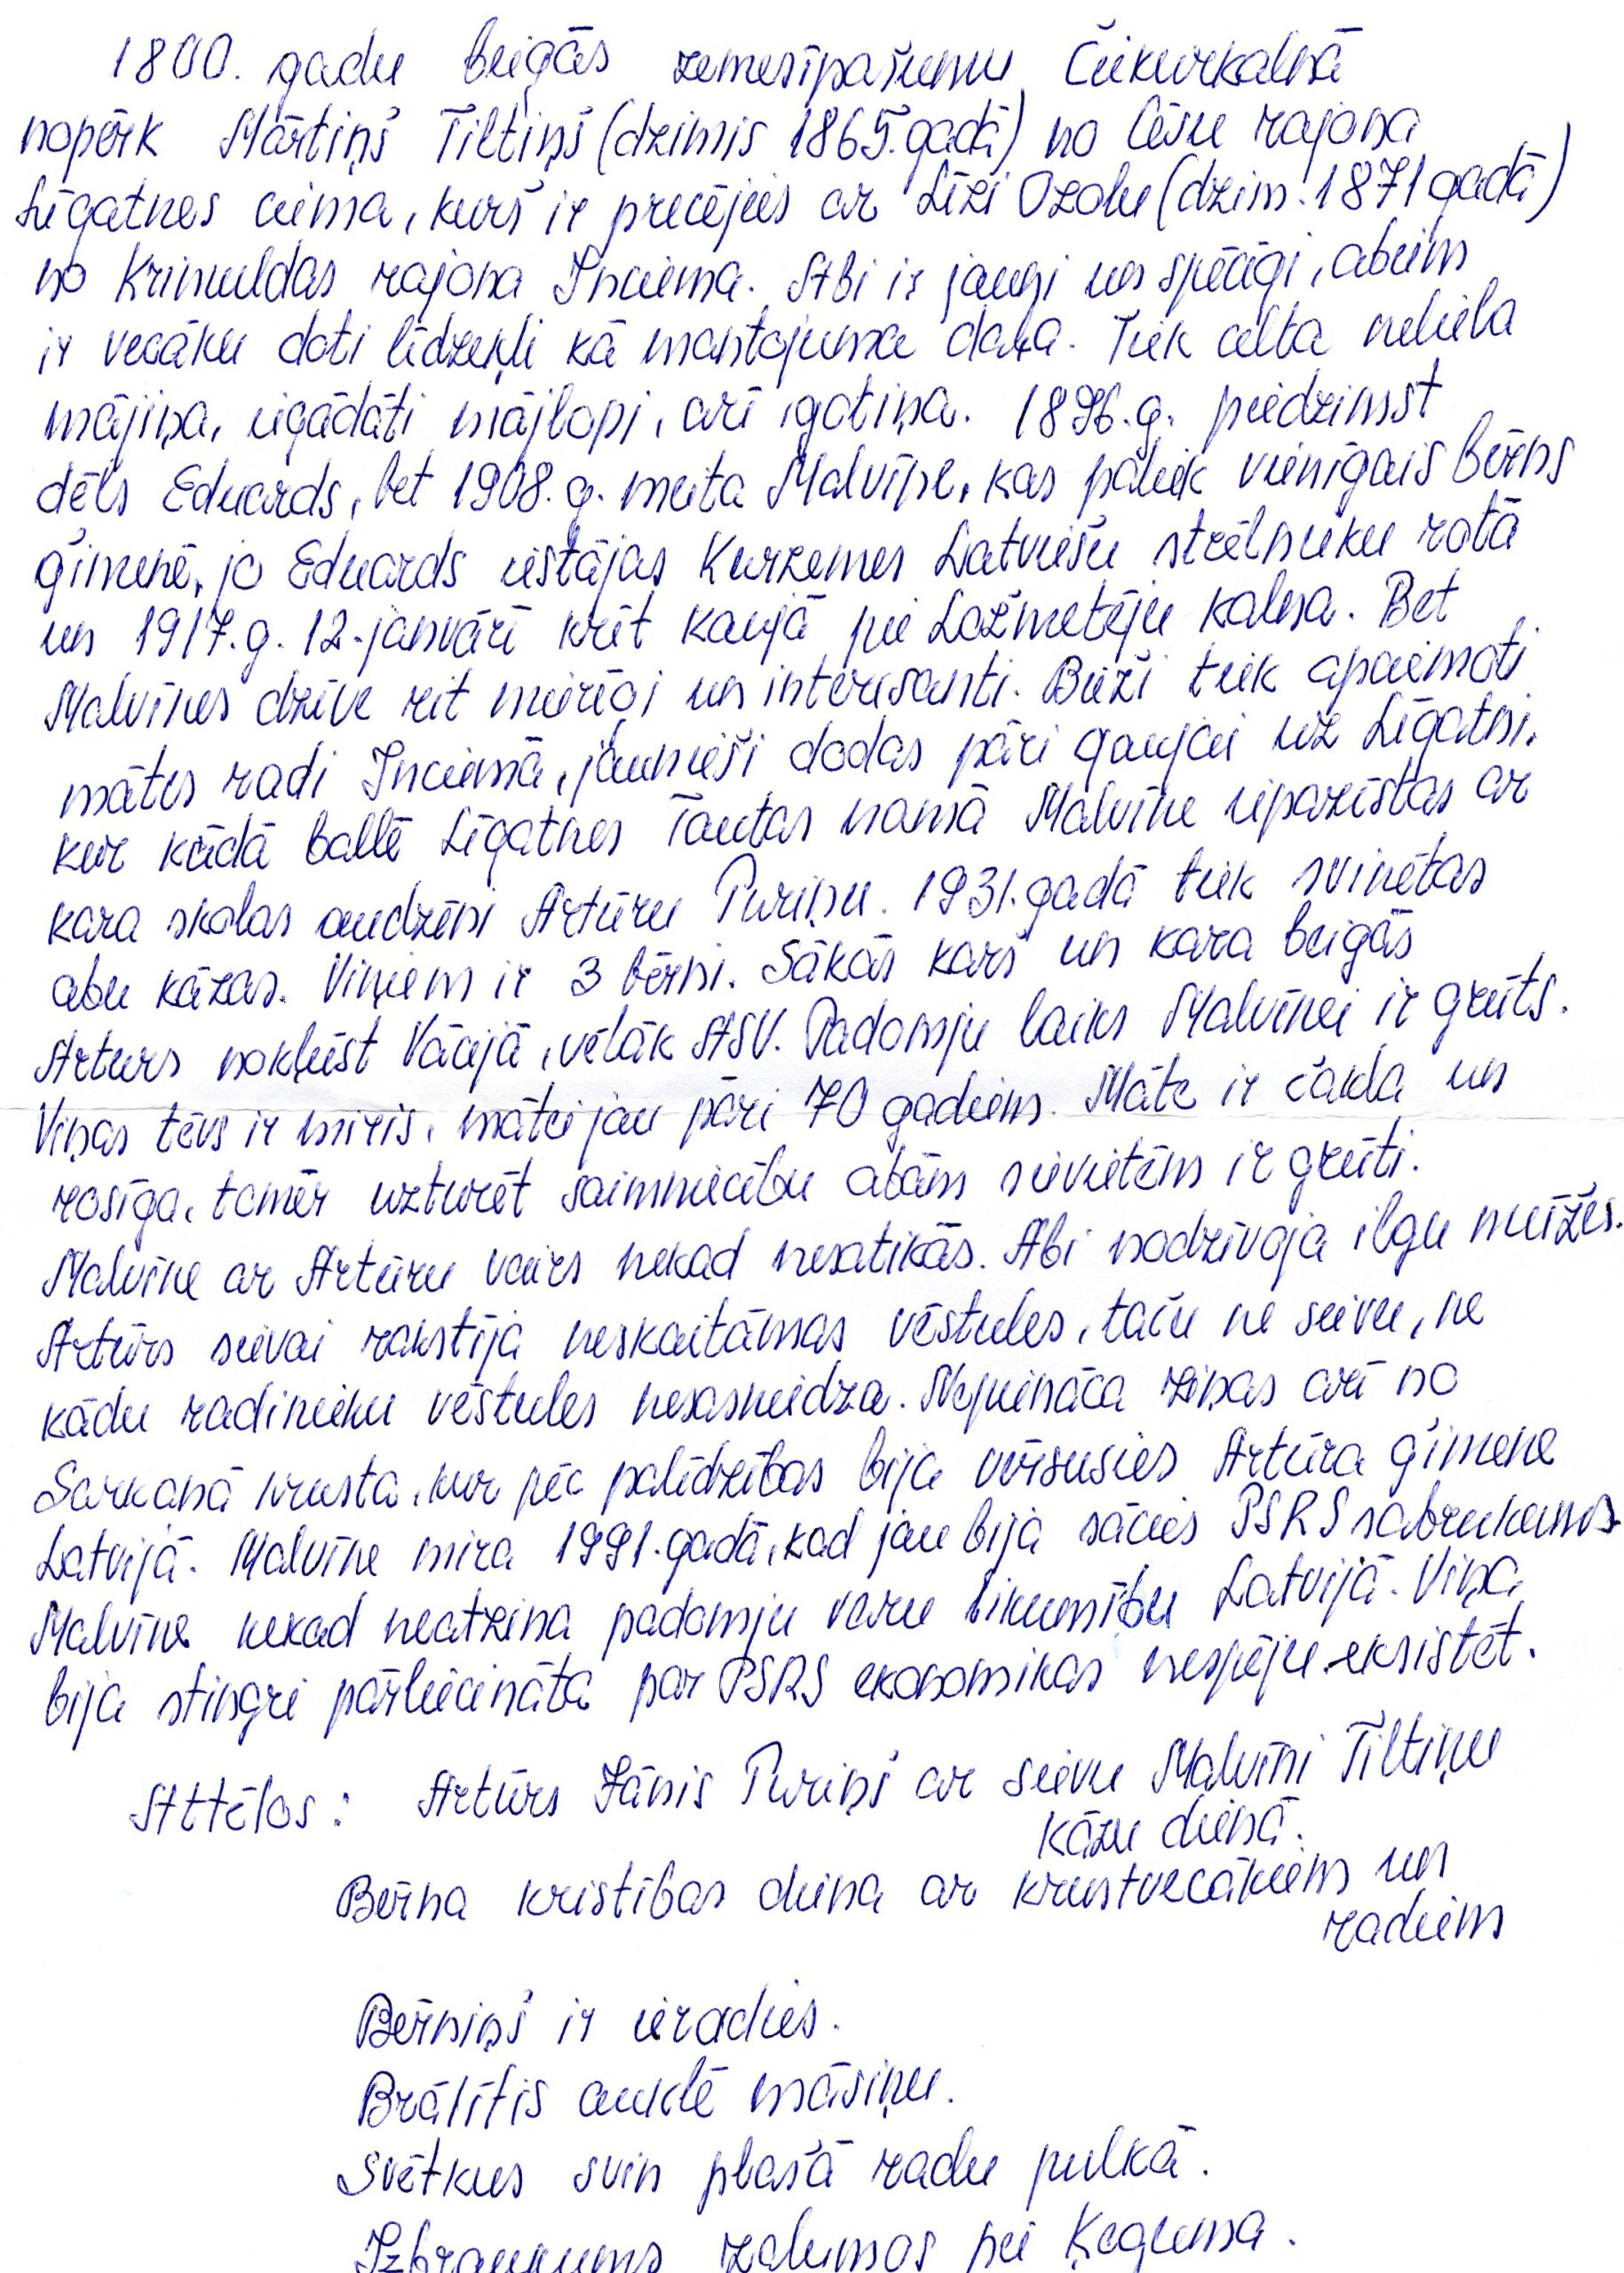 1800. gadu beigās zemesīpašumu Čiekurkalnā
nopērk Mārtiņš Tiltiņš (dzimis 1865. gadā) no Cēsu rajona
Līgatnes ciema, kurš ir precējies ar Līzi Ozolu (dzim. 1871 gadā)
no Krimuldas rajona Inciema. Abi ir jauni un spēcīgi, abiem
ir vecāku doti līdzekļi kā mantojuma daļa. Tiek celta neliela
mājiņa, iegādāti mājlopi, arī gotiņa. 1896. g. piedzimst
dēls Eduards, bet 1908. g. meita Malvīne, kas paliek vienīgais bērns
ģimenē, jo Eduards iestājas Kurzemes Latviešu strēlnieku rotā
un 1917. g. 12. janvārī krīt kaujā pie Ložmetēju kalna. Bet
Malvīnes dzīve rit mierīgi un interesanti. Bieži tiek apciemoti
mātes radi Inciemā, jaunieši dodas pāri gaujai uz Līgatni,
kur kādā ballē Līgatnes Tautas namā Malvīne iepazīstas ar
kara skolas audzēni Artūru Puriņu. 1931. gadā tiek svinētas
abu kāzas. Viņiem ir 3 bērni. Sākās karš un kara beigās
Arturs nokļūst Vācijā, vēlāk ASV. Padomju laiks Malvīnei ir grūts.
Viņas tēvs ir miris, mātei jau pāri 70 gadiem. Māte ir čakla un
rosīga, tomēr uzturēt saimniecību abām sievietēm ir grūti.
Malvīne ar Artūru vairs nekad nesatikās. Abi nodzīvoja ilgu mūžu.
Artūrs sievai rakstīja neskaitāmas vēstules, taču ne sievu, ne
kādu radinieku vēstules nesasniedza. Nepienāca ziņas arī no
Sarkanā krusta, kur pēc palīdzības bija vērsusies Artūra ģimene
Latvijā. Malvīne mira 1991. gadā, kad jau bija sācies PSRS sabrukums.
Malvīne nekad neatzina padomju varu likumību Latvijā. Viņa
bija stingri pārliecināta par PSRS ekonomikas nespēju eksistēt.
Attēlos: Artūrs Jānis Puriņš ar sievu Malvīni Tiltiņu
kāzu dienā.
Bērna kristības diena ar krustvecākiem un
radiem
Bērniņš ir ieradies.
Brālītis auklē māsiņu.
Svētkus svin plašā radu pulkā.
Izbraukums zaļumos pie Ķeguma.